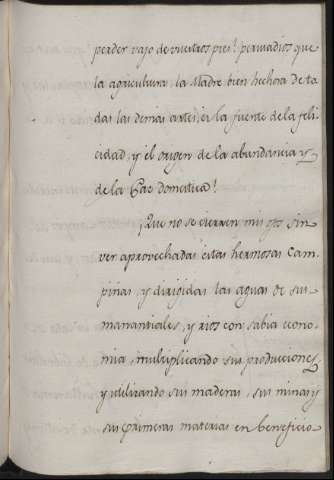 perder vajo de vuestros pies! persuadios que
la agricultura, la Madre bien hechora de to
das las demas artes, es la fuente de la feli
cidad, y el origen de la abundancia y
de la Paz domestica!
¡Que no se cierren mis ojos sin
ver aprovechadas estas hermosas Cam-
piñas, y dirigidas las aguas de sus
manantiales, y rios con sabia econo-
mia, multiplicando sus producciones,
y utilizando sus maderas, sus minas y
sus primeras materias en beneficio